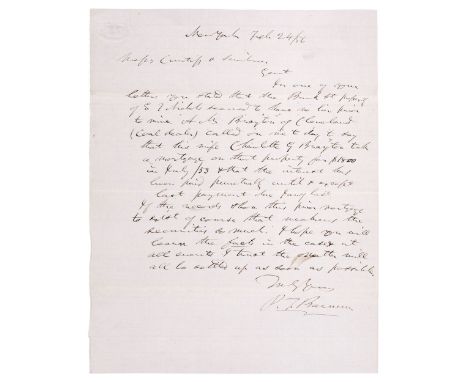 New York Feb. 24/56
Messrs Curtiss &
Gent
In one of your
letters you stated that the Bank St property
of E. J. Nichols seemed to have no lien prior
to mine. A Mr Brayton of Cleveland
(Coal dealer) called on me to day to say
that his wife Charlotte G Brayton took
a mortgage on that property for $1500
in July /53 & that the interest has
been paid punctually until & except
last payment due
If the records show this prior mortgage
to exist of course that weakens the
securities so much. I hope you will
learn the facts in the case & act
I trust the matter will
all be settled up as soon as possible
Truly Yours
P. T. Barnum